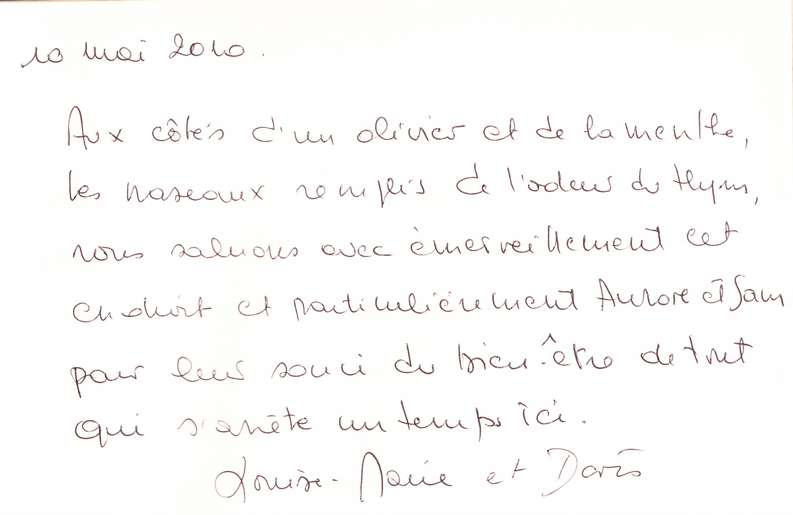 10 mai 2010.
Aux côtés d'un olivier et de la menthe,
les naseaux remplis de l'odeur du thym,
nous saluons avec émerveillement cet
endroit et particulièrement Aurore et Sam
pour leur souci du bien-être de tout
qui s'arrête un temps ici.
Louise-Marie et Doris